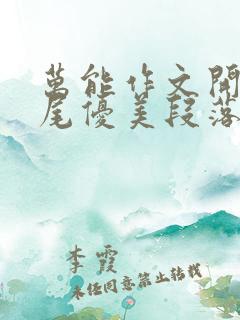 萬能作文開
尾優美段落
李霞
未经同意禁止转载